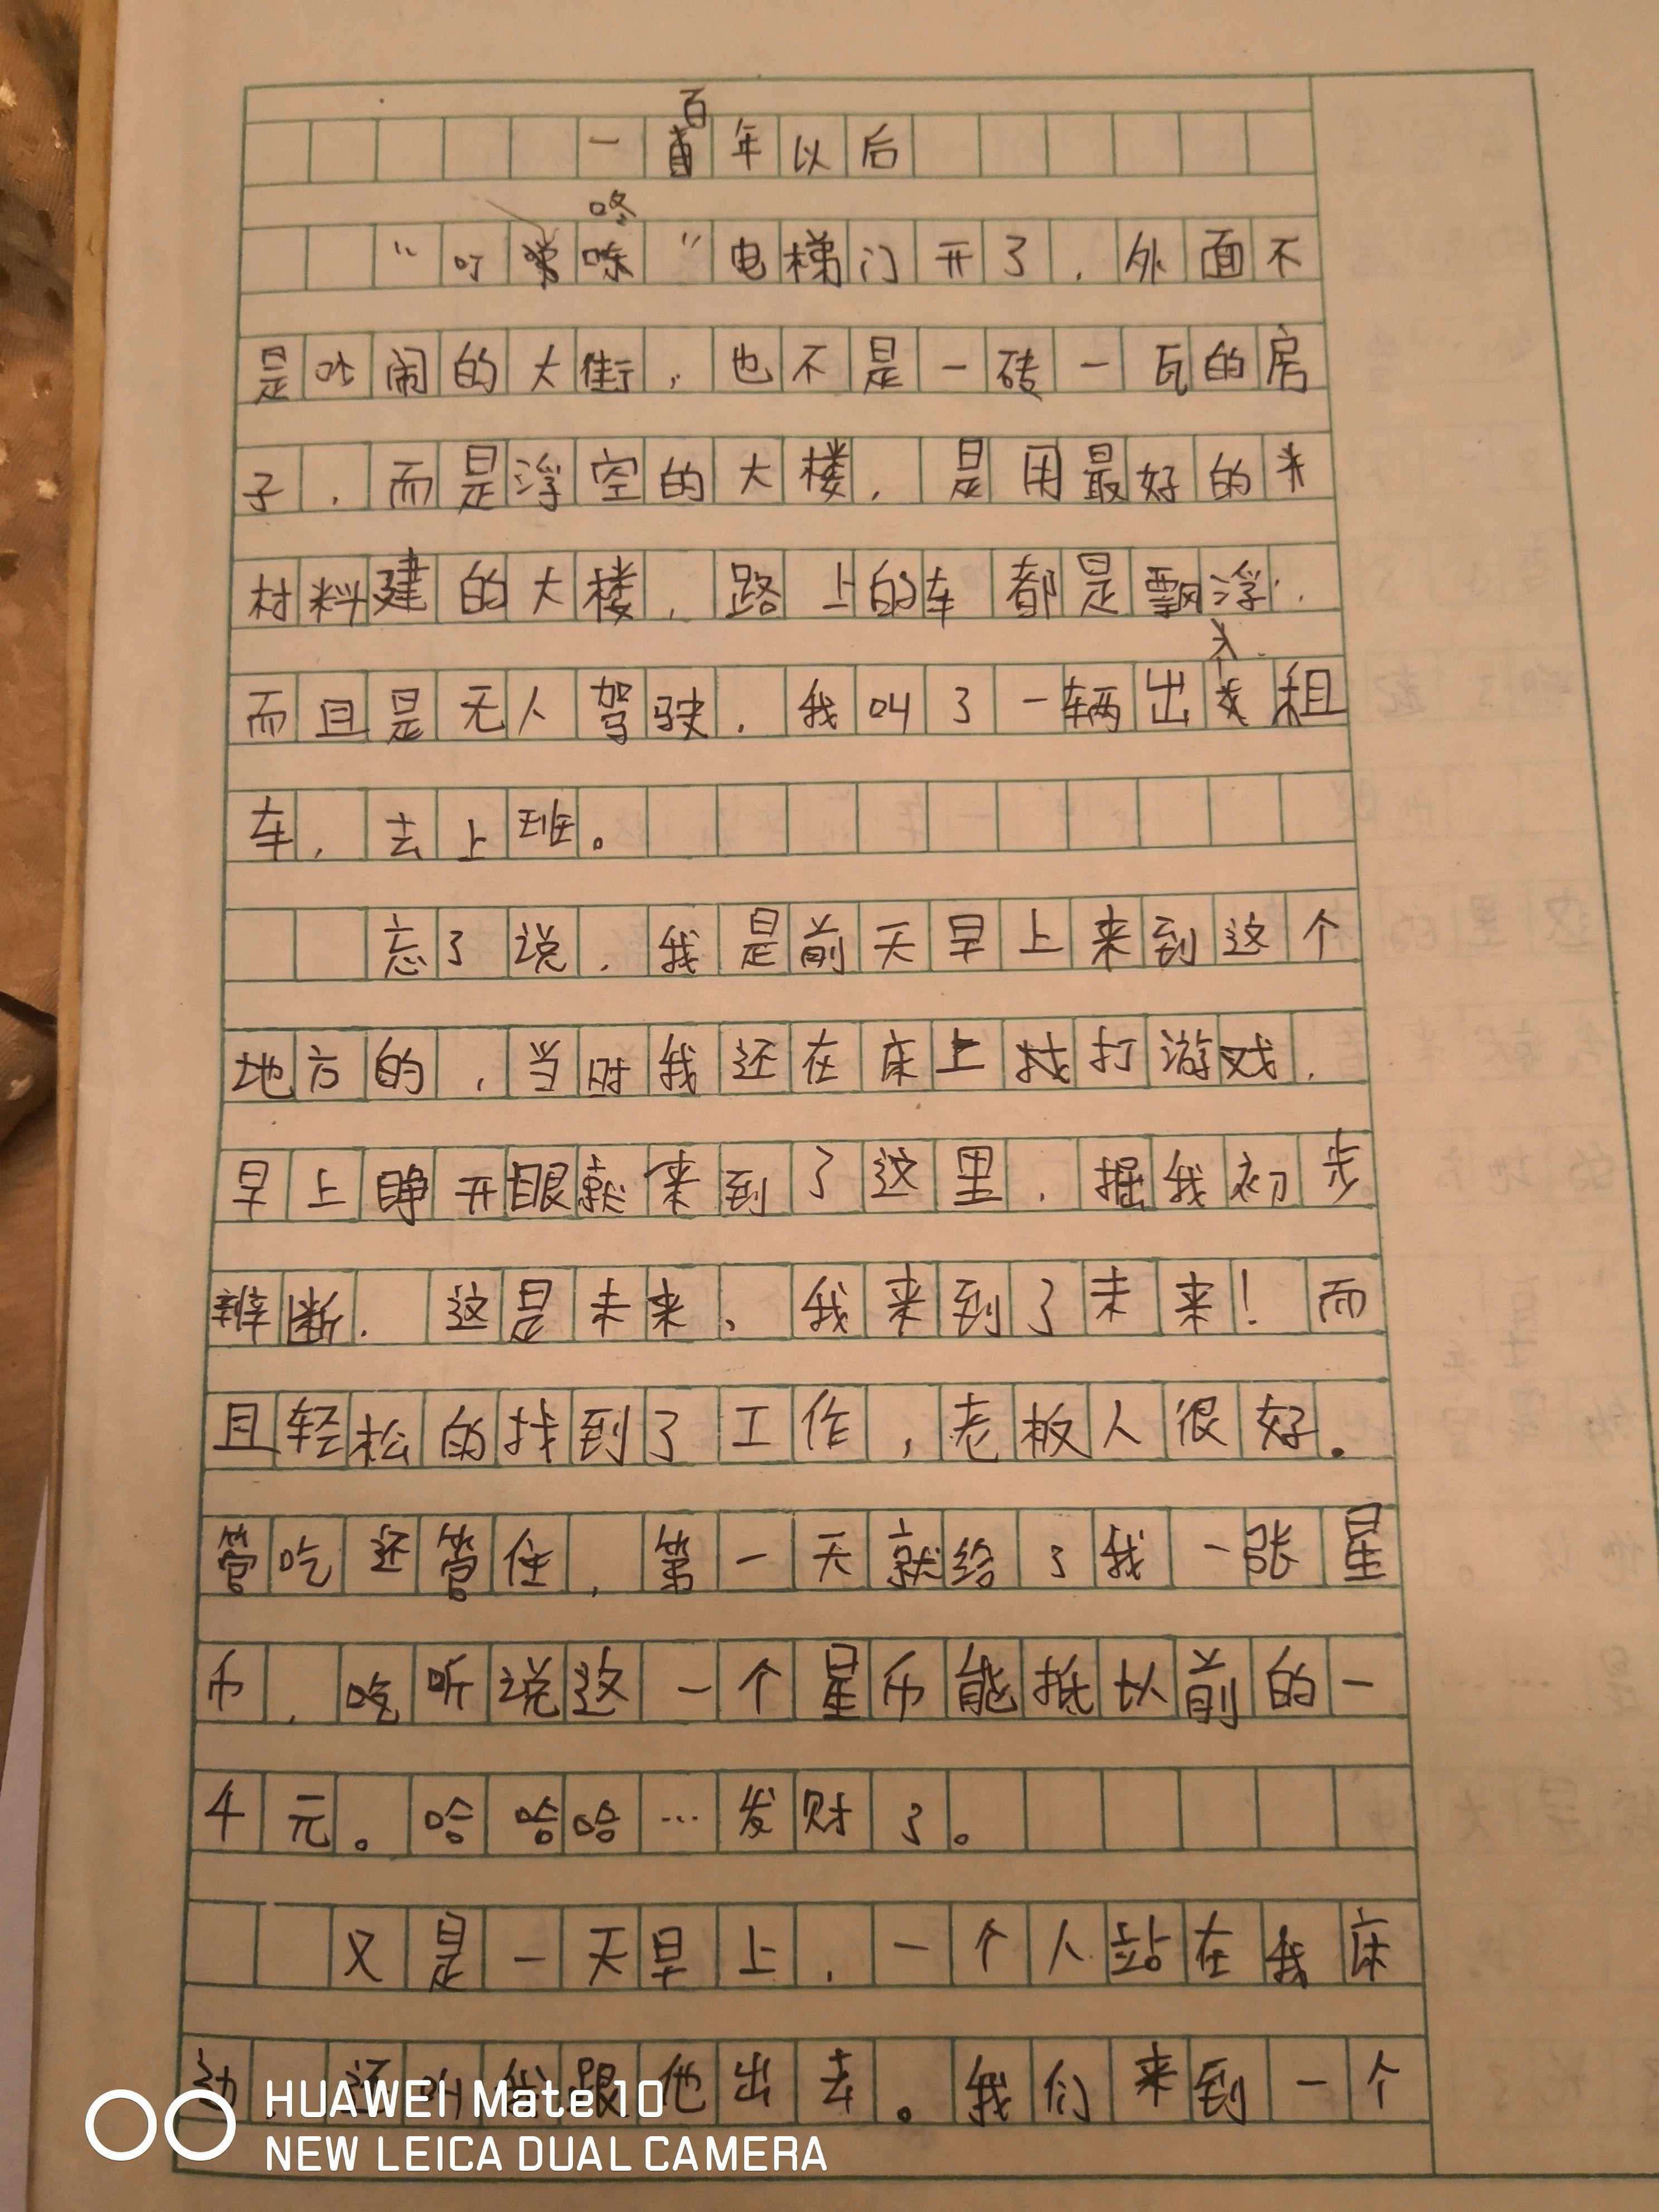 一百年以后
“叮咚”电梯门开了，外面不
是吵闹的大街，也不是一砖一瓦的房
子，而是浮空的大楼，是用最好的
材料建的大楼，路上的车都是飘浮，
而且是无人驾驶，我叫了一辆出租
车，去上班。
忘了说，我是前天早上来到这个
地方的，当时我还在床上找打游戏，
早上睁开眼就来到了这里，掘我初步
辨断，这是未来，我来到了未来！而
且轻松的找到了工作，老板人很好。
管吃还管住，第一天就给了我一张星
币，吃听说这一个星币能抵以前的一
千元。哈哈哈…发财了。
又是一天早上，一个人站在我床
边，还叫我跟他出去。我们来到一个
HUAWEI Mate 10
NEW LEICA DUAL CAMERA